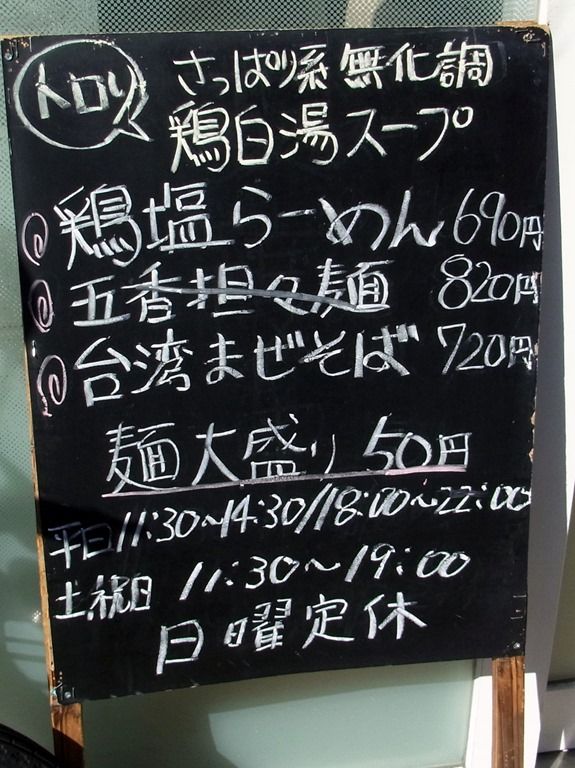 トロリ
さっぱり系 無化調
鶏白湯スープ
鶏塩らーめん 690円
五香担々麺 820円
台湾まぜそば 720円
麺大盛り 50円
平日 11:30～14:30/18:00～22:00
土、祝日 11:30～19:00
日曜定休